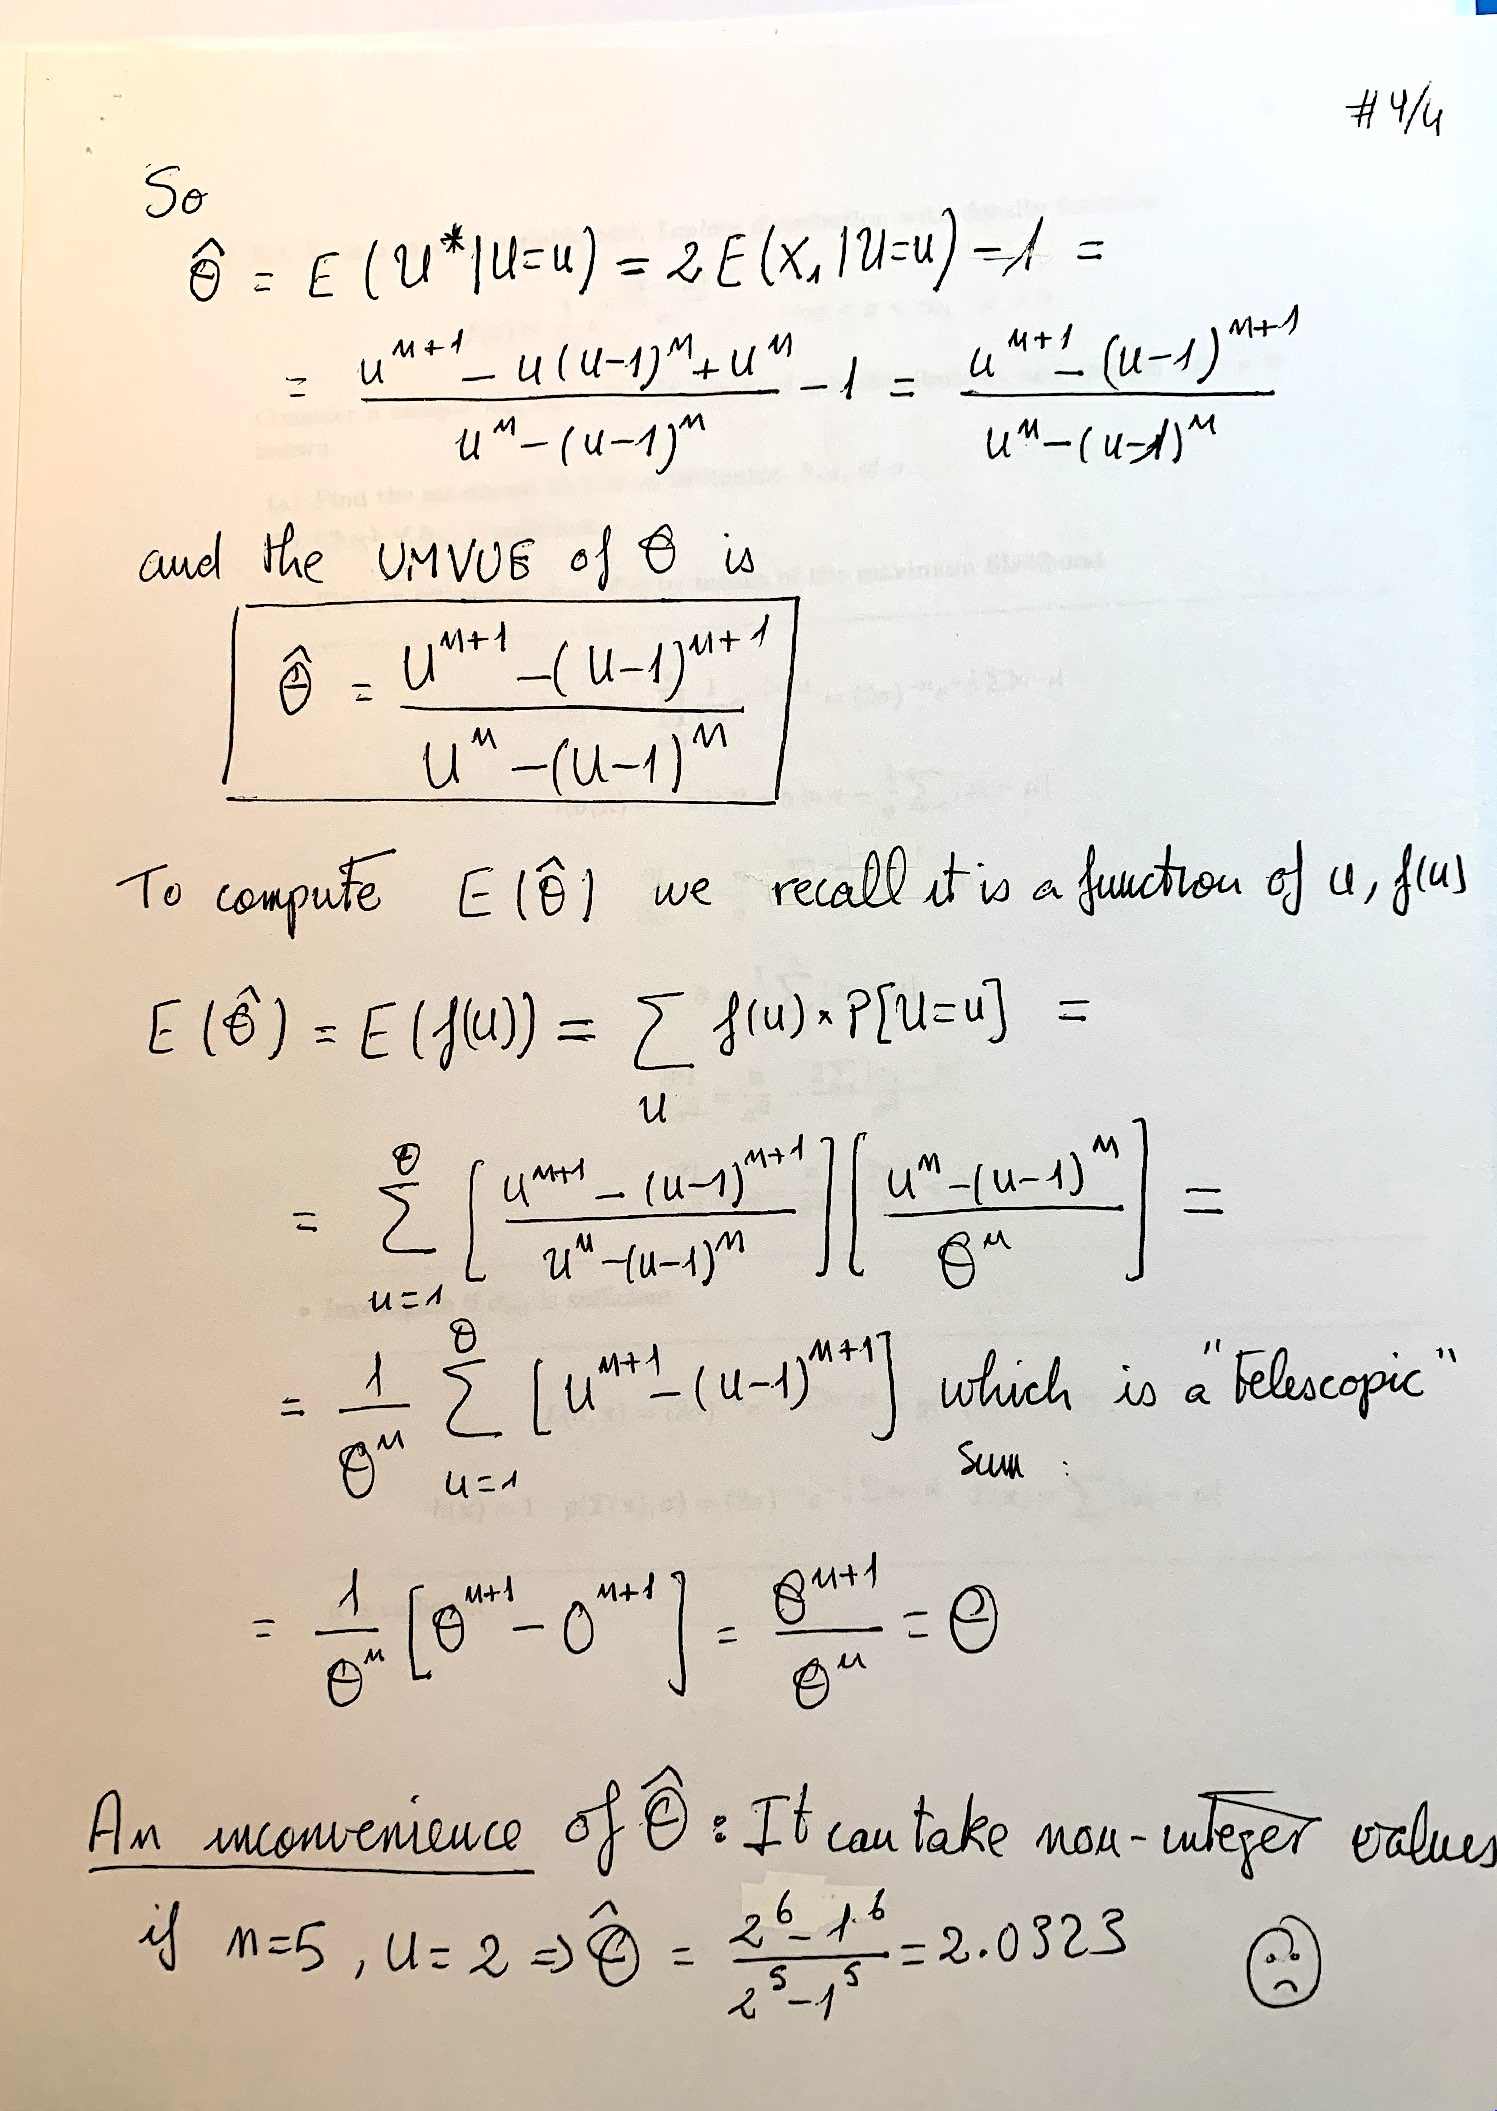 #4/4
So
θ̂ = E(U*|U=u) = 2E(X₁|U=u) - 1 =
= (u^{n+1} - u(u-1)^n + u^n) / (u^n - (u-1)^n) - 1 = (u^{n+1} - (u-1)^{n+1}) / (u^n - (u-1)^n)
and the UMVUE of θ is
θ̂ = (U^{n+1} - (U-1)^{n+1}) / (U^n - (U-1)^n)
To compute E(θ̂) we recall it is a function of u, f(u)
E(θ̂) = E(f(u)) = ∑_u f(u) × P[U=u] =
= ∑_{u=1}^{θ} [(u^{n+1} - (u-1)^{n+1}) / (u^n - (u-1)^n)] [(u^n - (u-1)^n) / θ^n] =
= 1/θ^n ∑_{u=1}^{θ} [u^{n+1} - (u-1)^{n+1}] which is a "telescopic"
sum:
= 1/θ^n [θ^{n+1} - 0^{n+1}] = θ^{n+1}/θ^n = θ
An inconvenience of θ̂: It can take non-integer values
if n=5, u=2 => θ̂ = (2^6 - 1^6) / (2^5 - 1^5) = 2.0323